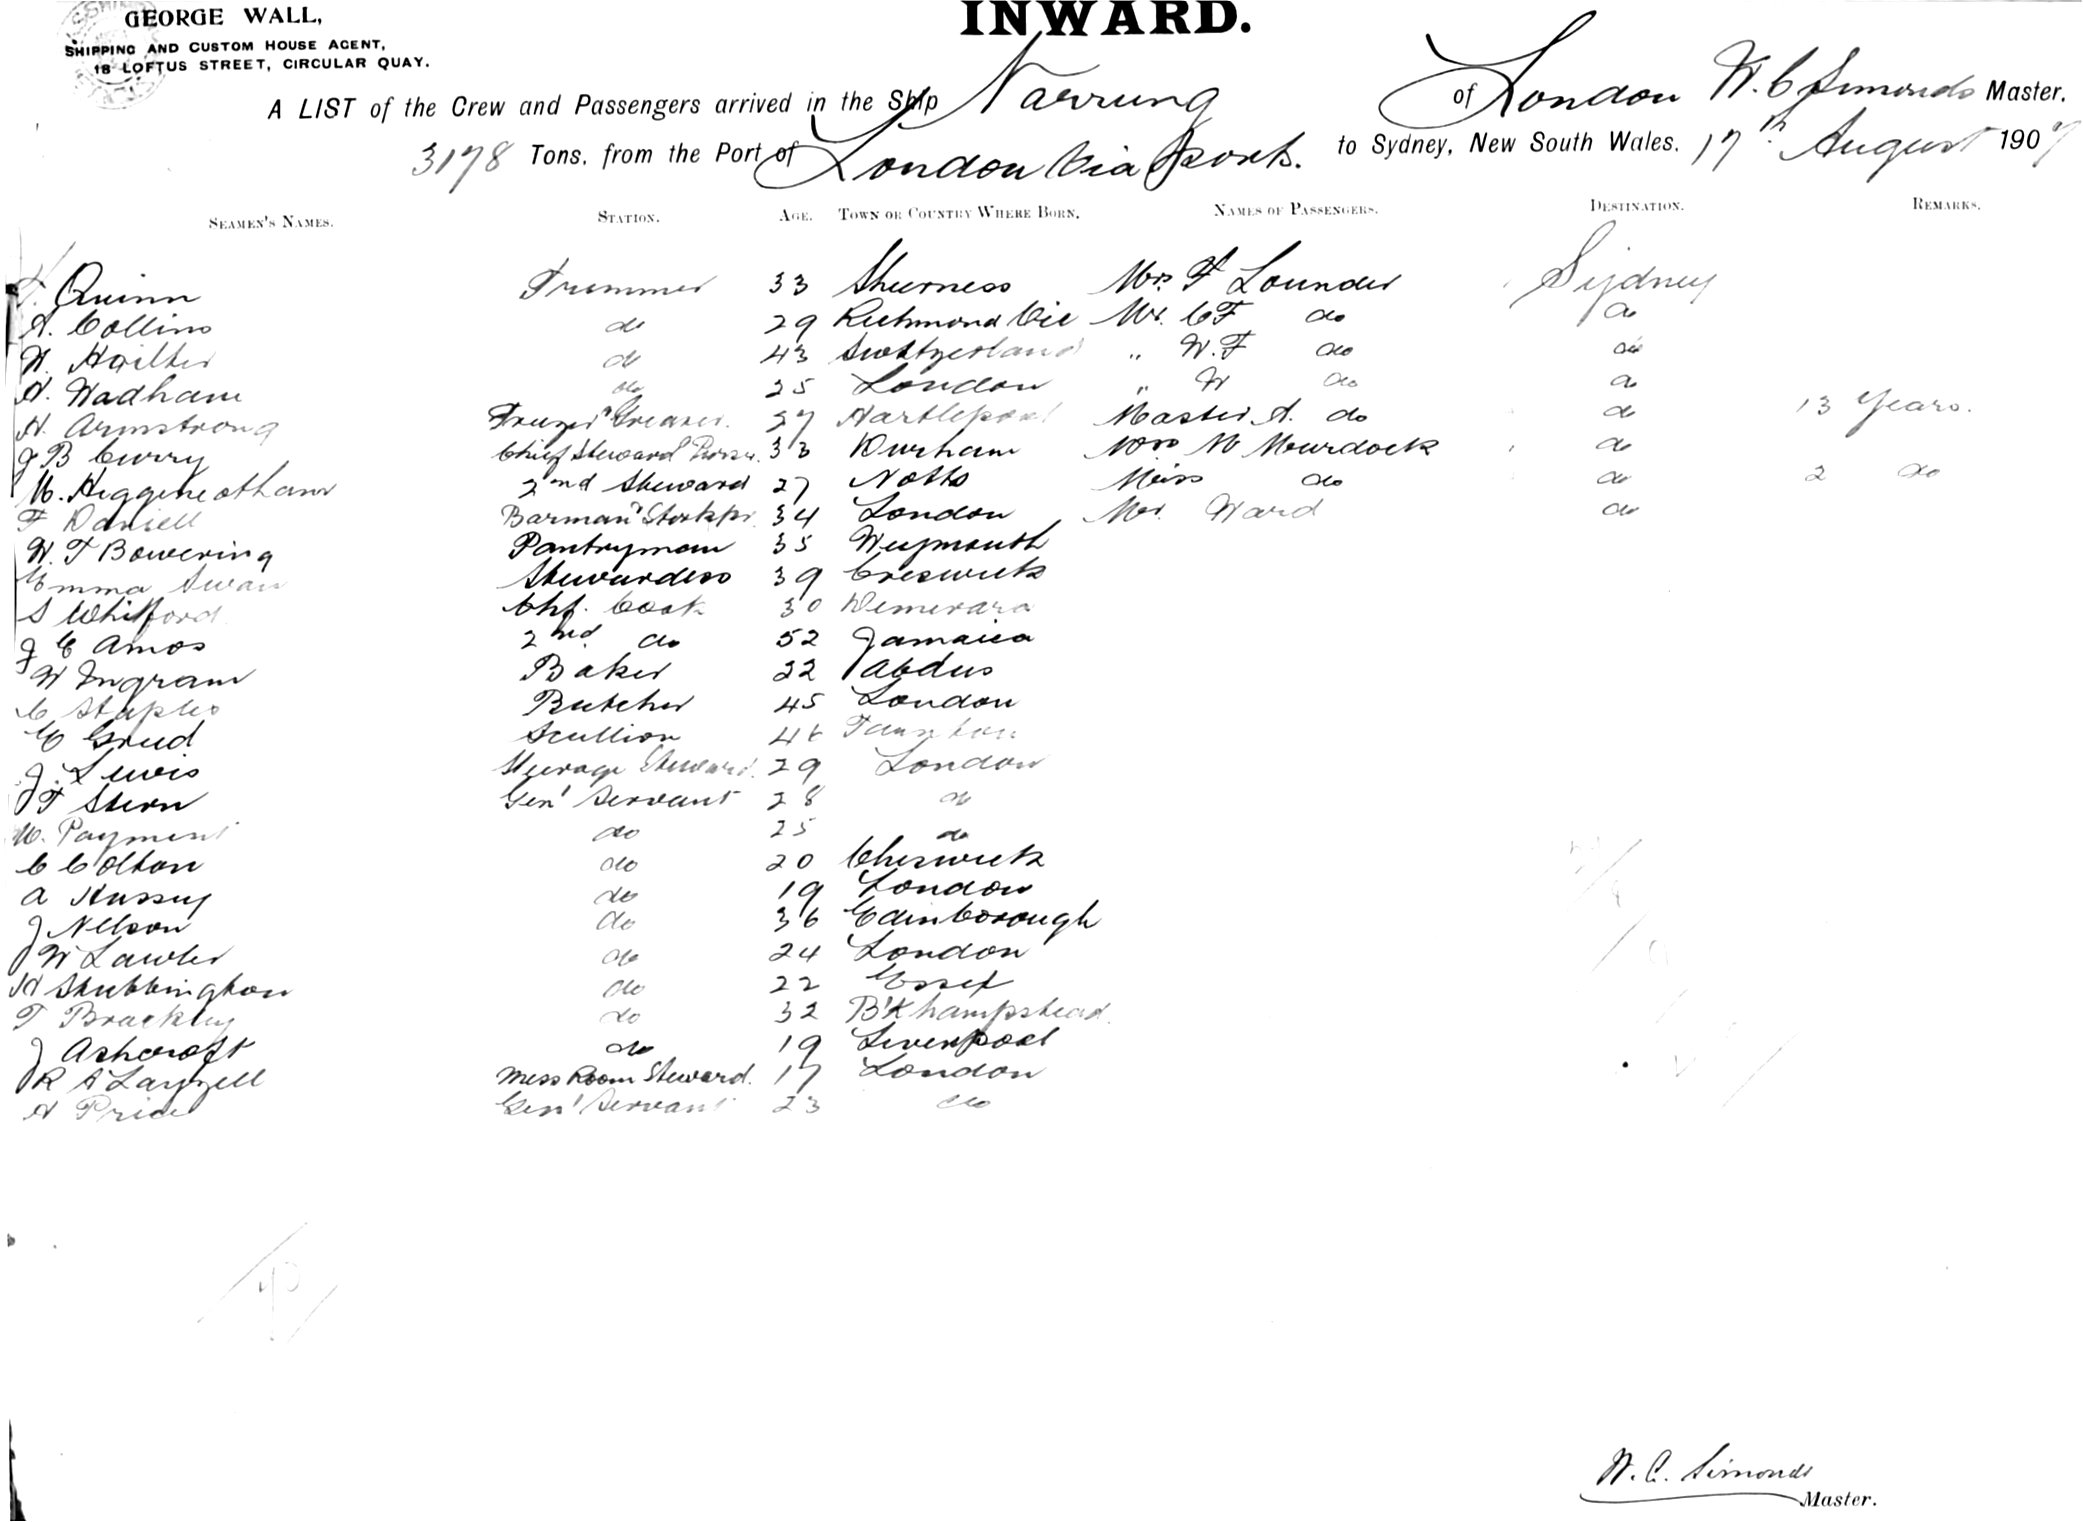 GEORGE WALL,
SHIPPING AND CUSTOM HOUSE AGENT,
18 LOFTUS STREET, CIRCULAR QUAY.
INWARD.
A LIST of the Crew and Passengers arrived in the Ship Narrung of London W. C Simonds Master.
3178 Tons, from the Port of London Via Ports. to Sydney, New South Wales, 17th August 1907
SEAMEN'S NAMES. STATION. AGE. TOWN OR COUNTRY WHERE BORN. NAMES OF PASSENGERS. DESTINATION. REMARKS.
Quinn Trimmer 33 Sheerness Mrs F Lounder Sydney
A. Collins do 29 Richmond Vic Mr. C F do do
W. do 43 Switzerland " W. F do do
H. Wadham do 25 London " W do do
H. Armstrong Greaser. 27 Hartlepool Master A. do do 13 Years.
J B Curry Chief Steward 33 Durham Mrs M Murdock do
M. Higginbotham 2nd Steward 27 Notts Miss do do 2 do
F Daniell Barman & Storkpr. 34 London Mr. Ward do
W. T Bowering Pantryman 35 Weymouth
Emma Swan Stewardess 39 Creswick
S Whitford Chf. Cook 30 Demerara
J E Amos 2nd do 52 Jamaica
W Ingram Baker 22
C Staples Butcher 45 London
Scullion 46 Taunton
J. Lewis Steerage Steward. 29 London
F Stern Genl Servant 28 do
Payment do 25 do
C Colton do 20 Chiswick
A Hussey do 19 London
J Nelson do 36 Edinborough
W Lawler do 24 London
H Stubbington do 22 Essex
T Brackley do 32 B'khampstead.
J Ashcroft do 19 Liverpool
R A Layzell Mess Room Steward. 17 London
H Price Genl Servant 23 do
W. C. Simonds
Master.